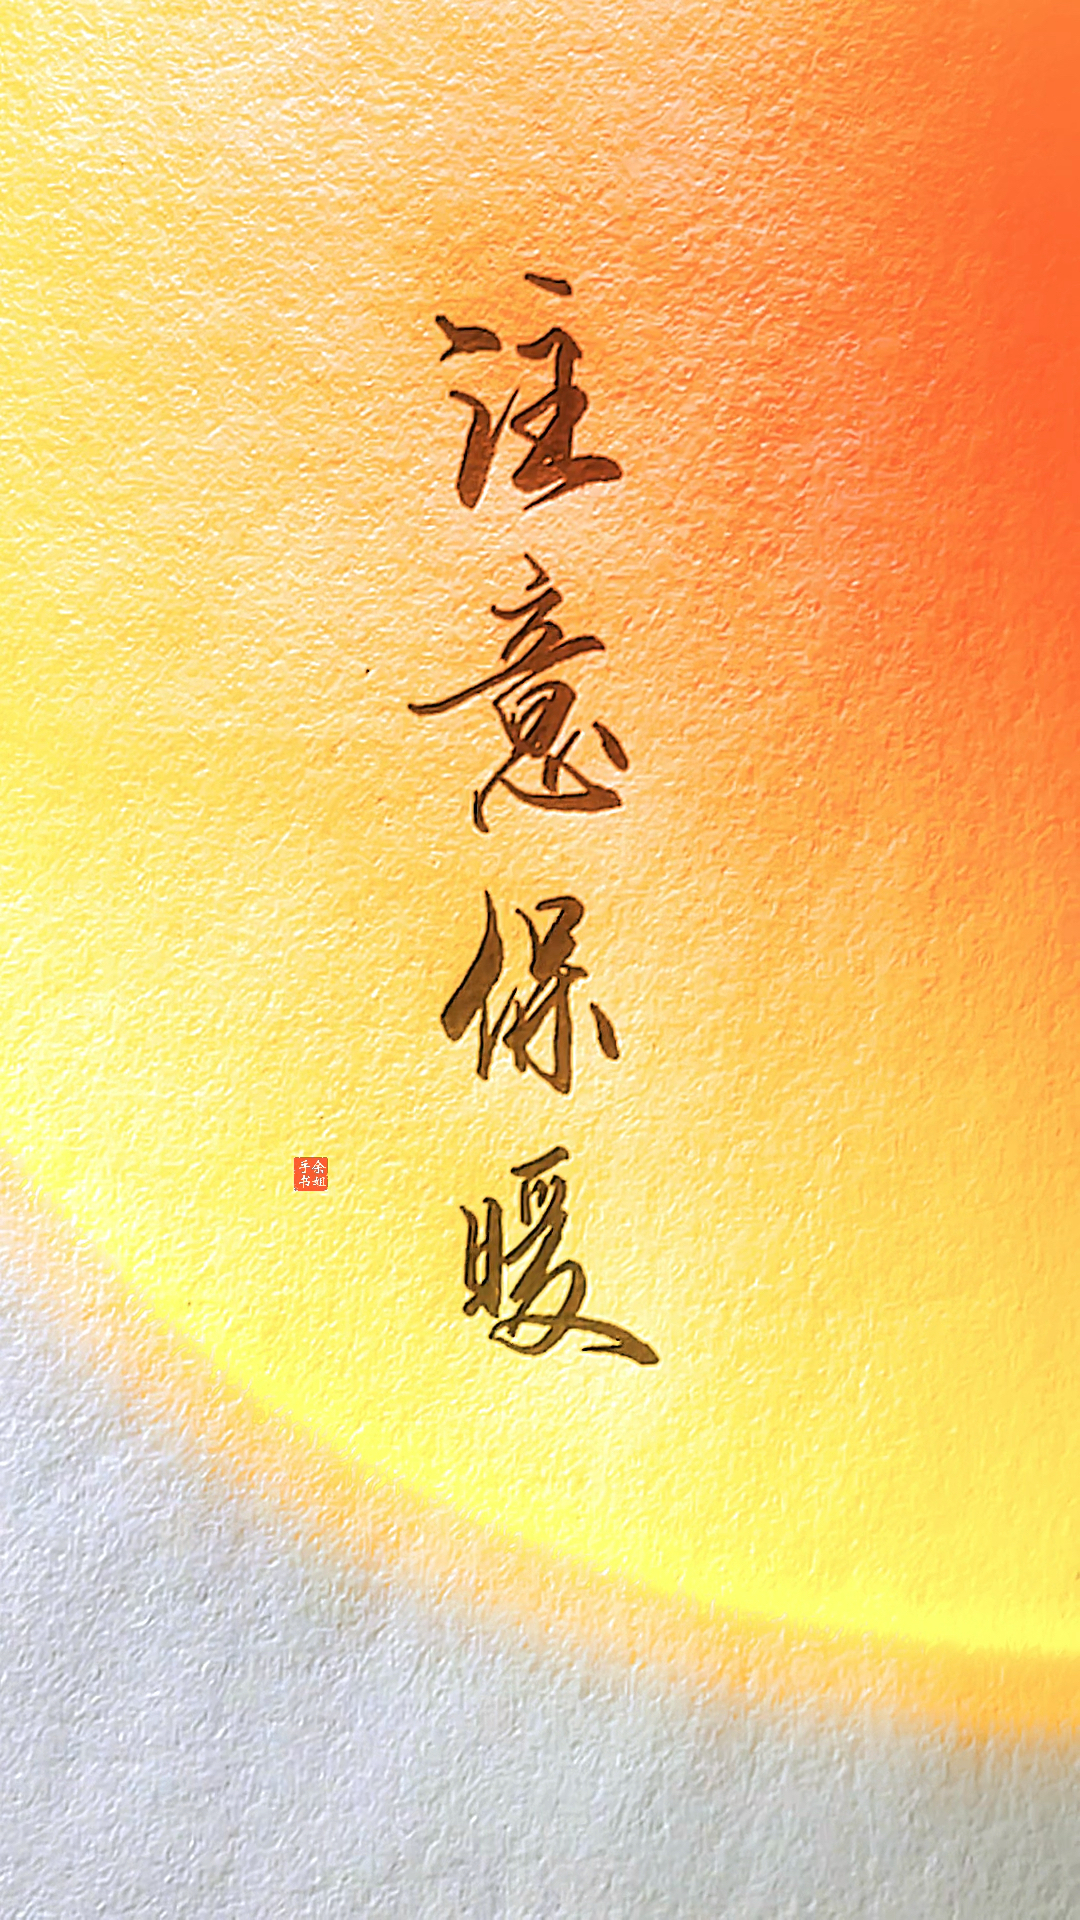 注意保暖
余姐
手书